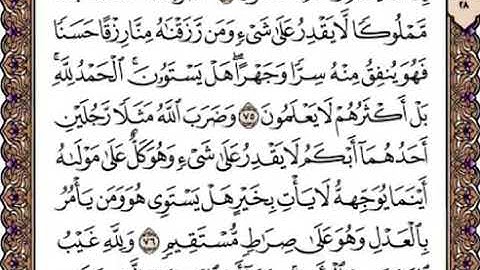 ٢٨
مَّمْلُوكًا لَّا يَقْدِرُ عَلَىٰ شَىْءٍ وَمَن رَّزَقْنَٰهُ مِنَّا رِزْقًا حَسَنًا
فَهُوَ يُنفِقُ مِنْهُ سِرًّا وَجَهْرًا ۖ هَلْ يَسْتَوُۥنَ ۚ ٱلْحَمْدُ لِلَّهِ ۚ
بَلْ أَكْثَرُهُمْ لَا يَعْلَمُونَ ٧٥ وَضَرَبَ ٱللَّهُ مَثَلًا رَّجُلَيْنِ
أَحَدُهُمَآ أَبْكَمُ لَا يَقْدِرُ عَلَىٰ شَىْءٍ وَهُوَ كَلٌّ عَلَىٰ مَوْلَىٰهُ
أَيْنَمَا يُوَجِّههُّ لَا يَأْتِ بِخَيْرٍ هَلْ يَسْتَوِى هُوَ وَمَن يَأْمُرُ
بِٱلْعَدْلِ وَهُوَ عَلَىٰ صِرَٰطٍ مُّسْتَقِيمٍ ٧٦ وَلِلَّهِ غَيْبُ